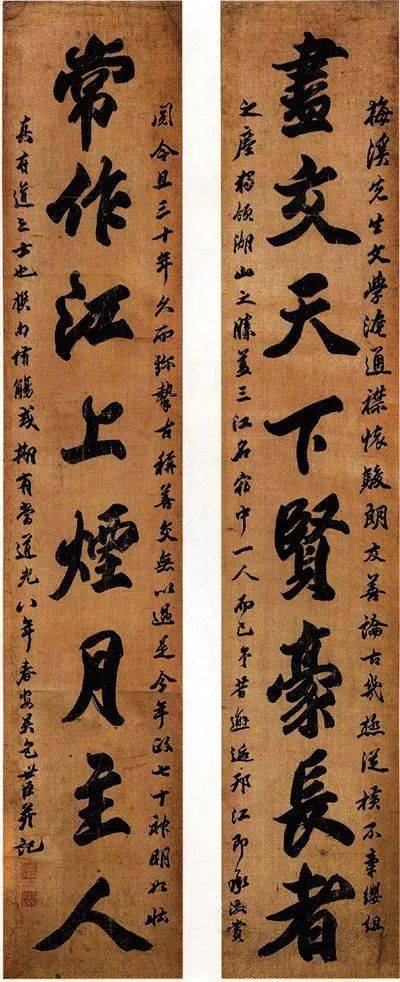 梅溪先生文學淹通襟懷駿朗友善論古幾極從橫不秉纓組
盡交天下賢豪長者
之塵獨領湖山之勝蓋三江名宿中一人而已予昔邂逅邗江即承激賞
閱今且三十年久而弥摯古稱善交無以過是今年政七十神明如
常作江上煙月主人
真有道之士也撰句侑觴或有當道光八年春安吳包世臣并記